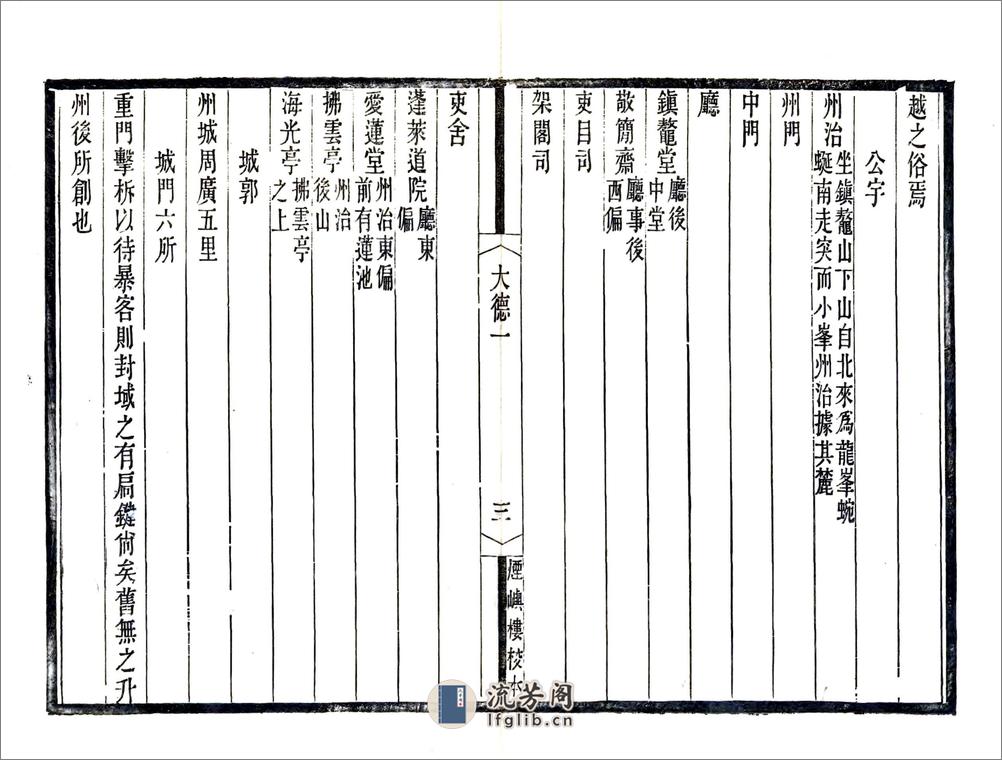 越之俗焉
公宇
州治坐鎮鼇山下山自北來爲龍峯蜿
蜒南走突而小峯州治據其麓
州門
中門
廳
鎮鼇堂廳後
中堂
敬簡齋廳事後
西偏
吏目司
架閣司
大德一
三
煙嶼樓校本
吏舍
蓬萊道院廳東
偏
愛蓮堂州治東偏
前有蓮池
拂雲亭州治
後山
海光亭拂雲亭
之上
城郭
州城周廣五里
城門六所
重門擊柝以待暴客則封域之有扃鐍尙矣舊無之升
州後所創也
流芳阁
lfglib.cn